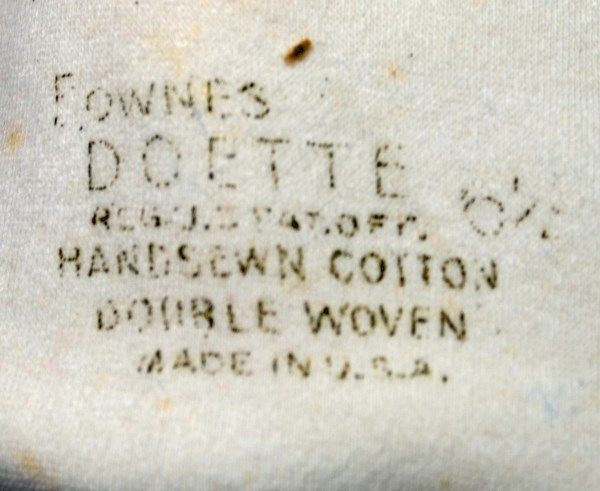 FOWNES
DOETTE
REG. U.S. PAT. OFF.
HANDSEWN COTTON
DOUBLE WOVEN
MADE IN U.S.A.
6 1/2